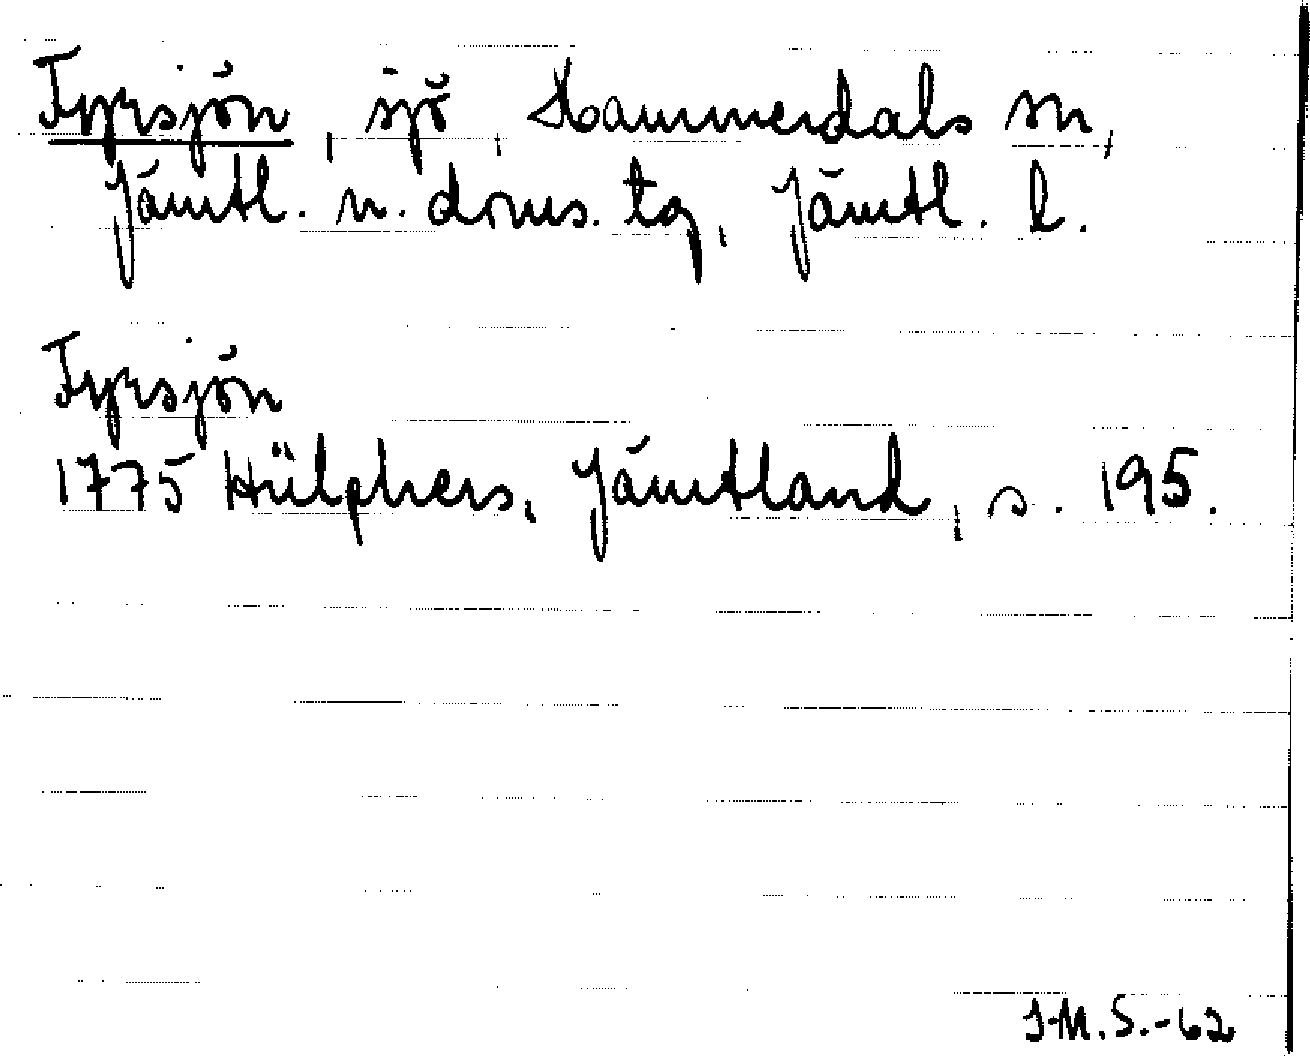 Fyrsjön, sjö, Hammerdals sn,
Jämtl. n. doms. tg, Jämtl. l.
Fyrsjön
1775 Hülphers, Jämtland, s. 195.
I-M.S.-62